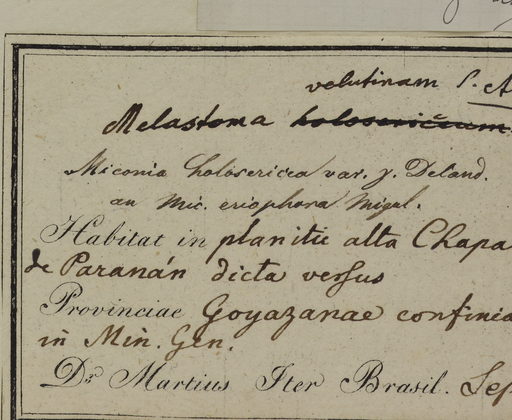 velutinam
Melastoma holosericeum
Miconia holosericea var. γ. Deland.
an Mic. eriophora Miqul.
Habitat in planitie alta Chapa
de Paranán dicta versus
Provinciae Goyazanae confinia
in Min. Gen.
Dr. Martius Iter Brasil. Sep